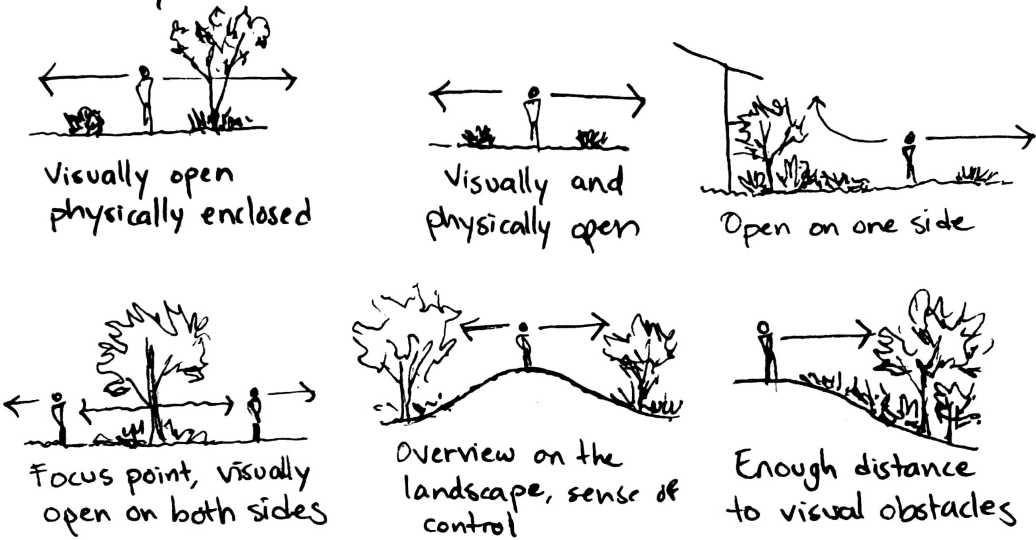 Visually open
physically enclosed
Visually and
physically open
Open on one side
Focus point, visually
open on both sides
Overview on the
landscape, sense of
control
Enough distance
to visual obstacles